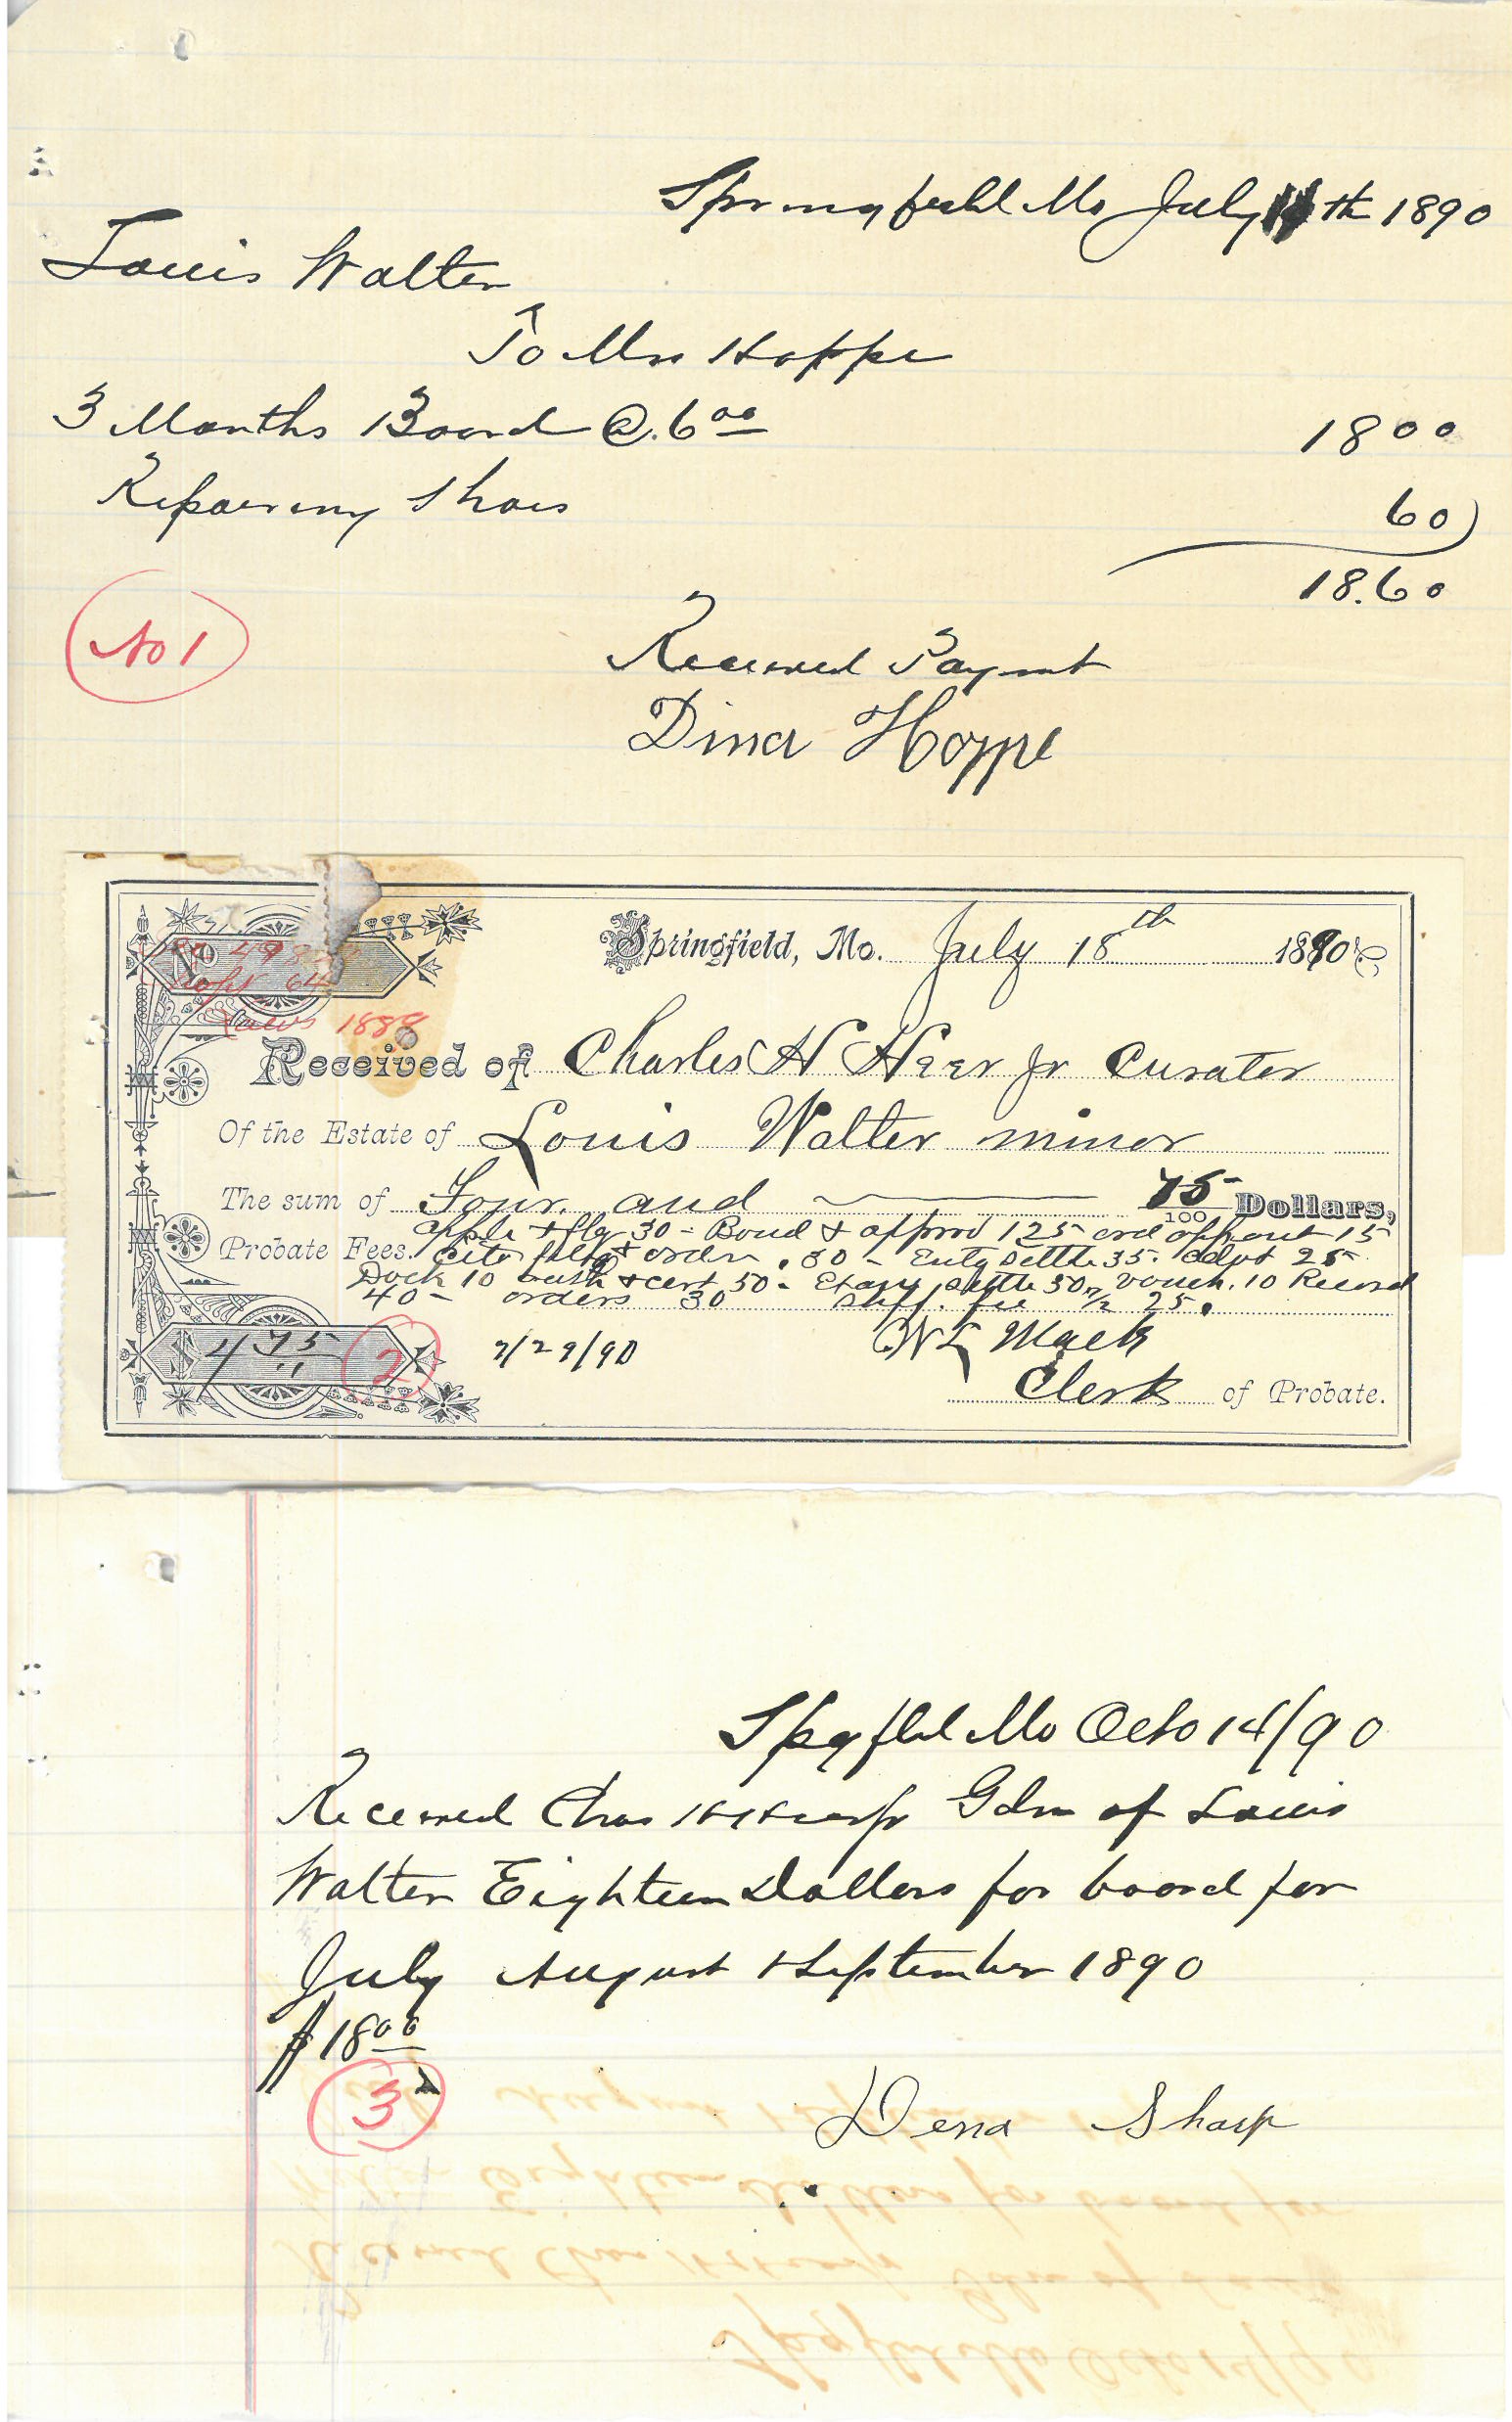 Springfield Mo July th 1890
Louis Walter
To Mrs Hoppe
3 Months Board @ 6 00
18 00
Repairing Shoes
60
18.60
No 1
Received Paymt
Dina Hoppe
Springfield, Mo. July 18th 1890
No
Laws 1888
Received of Charles H Heer Jr Curator
Of the Estate of Louis Walter minor
The sum of Four and 75/100 Dollars,
Probate Fees. & flg 30 - Bond & approd 125 ord appont 15
order .80 - Settle 35. 25
Dock 10 & cert 50 - Settle 50 vouch. 10 Record
40 - orders 30 fee 1/2 25.
$ 4 75
2
7/29/90
W L Mack
Clerk of Probate.
Spgfld Mo Octo 14/90
Received Chas H Heer Jr Gdn of Louis
Walter Eighteen Dollars for board for
July August & September 1890
$ 18 00
3
Dena Sharp